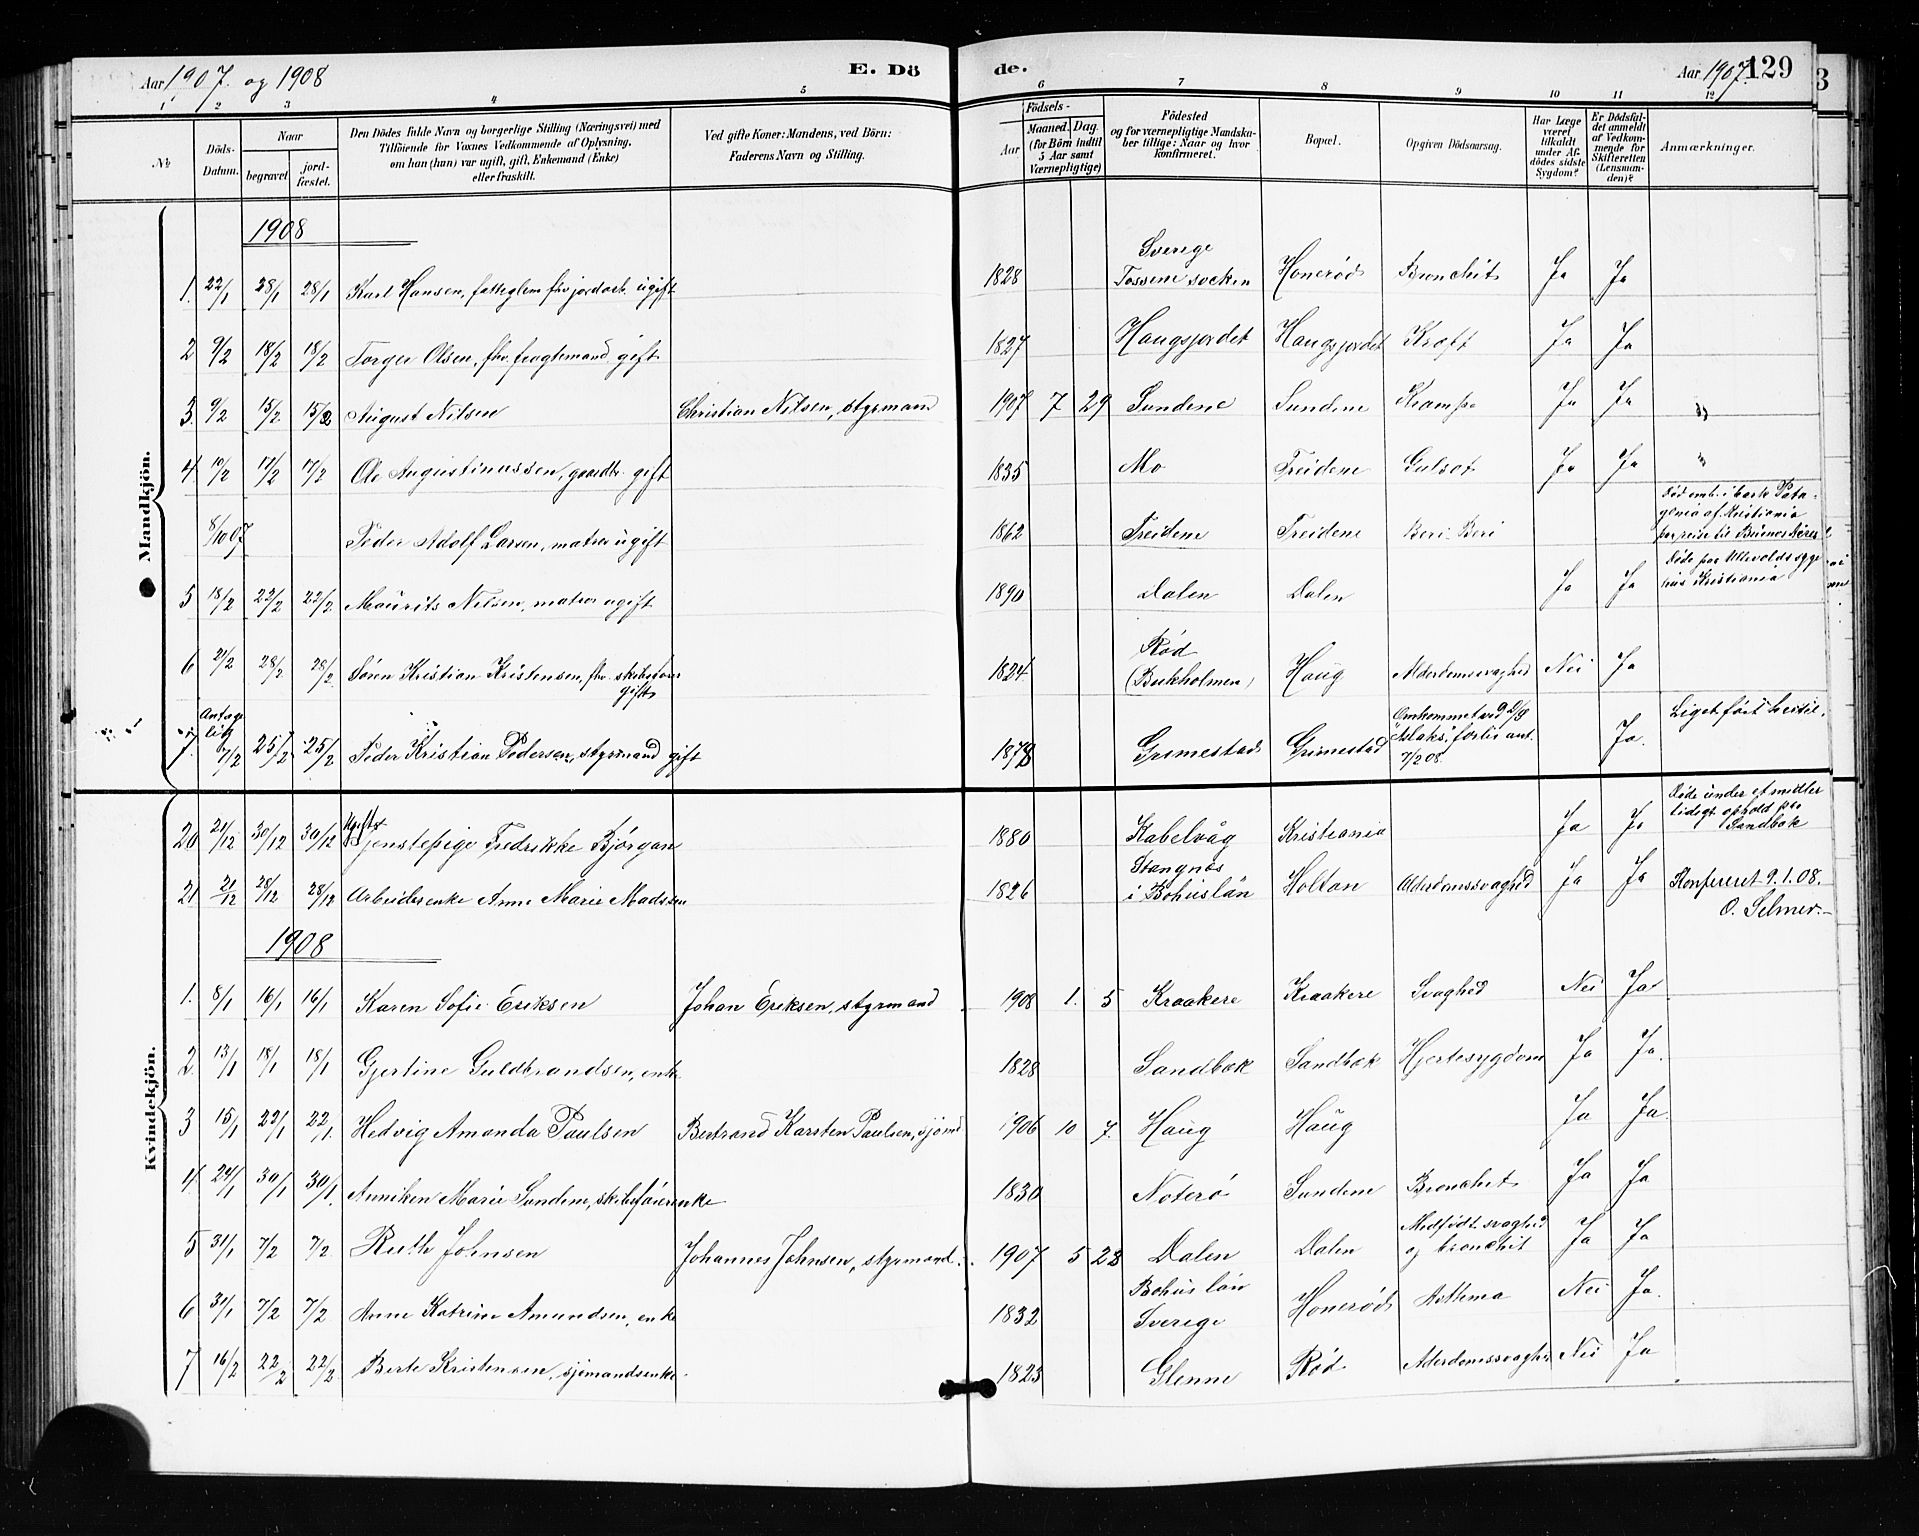 Aar 1907. og 1908
E. Dö
de.
Aar 1907. 129
3
1 2 3 4 5 6 7 8 9 10 11 12
№
Döds-Datum.
Naar
begravet
jord-fæstet.
Den Dödes fulde Navn og borgerlige Stilling (Næringsvei) med
Tilföiende for Voxnes Vedkommende af Oplysning,
om han (hun) var ugift, gift, Enkemand (Enke)
eller fraskilt.
Ved gifte Koner: Mandens, ved Börn:
Faderens Navn og Stilling.
Födsels-
Aar
Maaned. Dag.
(for Börn indtil
5 Aar samt
Værnepligtige)
Födested
og for værnepligtige Mandska-
ber tillige: Naar og hvor
konfirmeret.
Bopæl.
Opgiven Dödsaarsag.
Har Læge
været
tilkaldt
under Af-
dödes sidste
Sygdom?
Er Dödsfal-
det anmeldt
af Vedkom-
mende for
Skifteretten
(Lensman-
den)?
Anmærkninger.
Mandkjön.
1908
1. 22/1 28/1 28/1 Karl Hansen, fattiglem fhv jordarb. ugift 1828 Sverige Tossene socken Honerød Bronchit Ja Ja
2 9/2 18/2 18/2 Torger Olsen, fhv. fragtemand gift 1827 Haugsjordet Haugsjordet Kræft Ja Ja
3. 9/2 15/2 15/2 August Nilsen Christian Nilsen, styrmand 1907 7 29 Sundene Sundene Krampe Ja Ja
4. 10/2 17/2 17/2 Ole Augustinussen, gaardbr. gift 1835 Mo Treidene Gulsot Ja Ja
8/10 07 Peder Adolf Larsen, matros ugift 1862 Treidene Treidene Beri-Beri Død omb. i bark Pata-
gonia af Kristiania
paa reise til Buenos Aires
5 18/2 22/2 22/2. Maurits Nilsen, matros ugift 1890 Dalen Dalen Ja Ja Døde paa Ullevolds syge
hus Kristiania
6 21/2 28/2 28/2. Søren Kristian Kristensen, fhv. skibsfører
gift 1824 Rød
(Bukholmen) Haug Alderdomssvaghed Nei Ja
7. Antage
lig
7/2 25/2 25/2 Peder Kristian Pedersen, styrmand gift 1878 Grimestad Grimestad Omkommet ved D/S
"Aslaks" forlis ant.
7/2 08. Ja. Liget ført hertil.
Kvindekjön.
20 21/12 30/12 30/12 Ugift
Tjenstepige Fredrikke Bjørgan 1880 Kabelvåg Kristiania Ja Ja Døde under et midler
tidigt ophold paa
Sandbæk
21 21/12 28/12 28/12 Arbeiderenke Anne Marie Madssen 1826 Stangnäs
i Bohuslän Holtan Alderdomssvaghed Ja Ja Konfereret 9.1.08.
O. Selmer.
1908
1. 8/1 16/1 16/1 Karen Sofie Eriksen Johan Eriksen, styrmand 1908 1. 5 Kraakere Kraakere Svaghed Nei Ja
2. 13/1 18/1 18/1 Gjertine Guldbrandsen, enke 1828 Sandbæk Sandbæk Hjertesygdom Ja Ja.
3 15/1 22/1 22/1. Hedvig Amanda Paulsen Bertrand Karsten Paulsen, sjømd 1906 10 7. Haug Haug Ja Ja.
4. 24/1 30/1 30/1. Anniken Marie Sundene, skibsførerenke 1830 Noterö Sundene Bronchit Ja Ja
5 31/1 7/2 7/2 Ruth Johnsen Johannes Johnsen, styrmand. 1907 5 28 Dalen Dalen Medfødt svaghed
og bronchit Ja Ja
6 31/1 7/2 7/2 Anne Katrine Amundsen, enke 1832 Bohuslän
Sverige Honerød Asthema Nei Ja.
7 16/2 22/2 22/2 Berte Kristensen, sjømandsenke. 1823 Glenne Rød Alderdomssvaghed Nei Ja